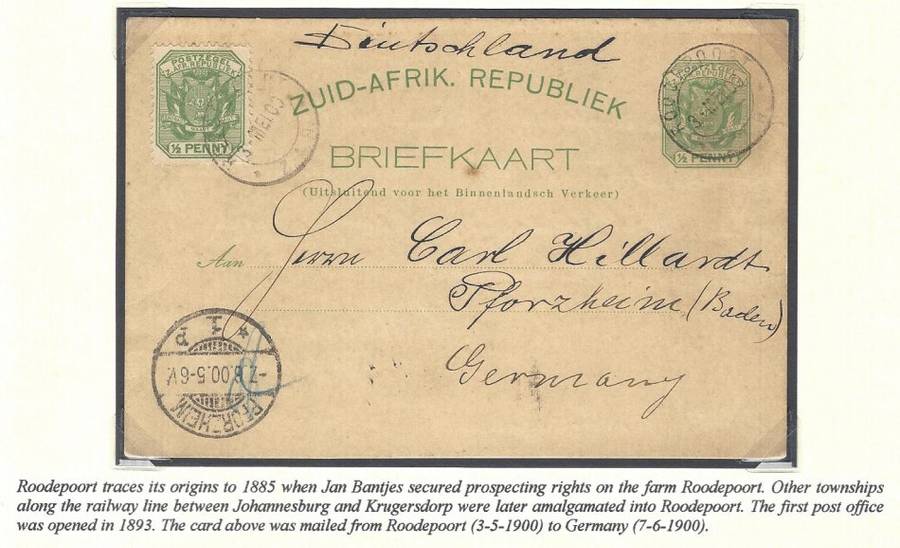 Deutschland
POSTZEGEL
Z. AFR. REPUBLIEK
½ PENNY
3-MEI.00
ZUID-AFRIK. REPUBLIEK
ROODEPOORT
½ PENNY
BRIEFKAART
(Uitsluitend voor het Binnenlandsch Verkeer)
Aan Herrn Carl Hillardt
Pforzheim (Baden)
Germany
PFORZHEIM
-7.6.00.5-6V.
Roodepoort traces its origins to 1885 when Jan Bantjes secured prospecting rights on the farm Roodepoort. Other townships
along the railway line between Johannesburg and Krugersdorp were later amalgamated into Roodepoort. The first post office
was opened in 1893. The card above was mailed from Roodepoort (3-5-1900) to Germany (7-6-1900).